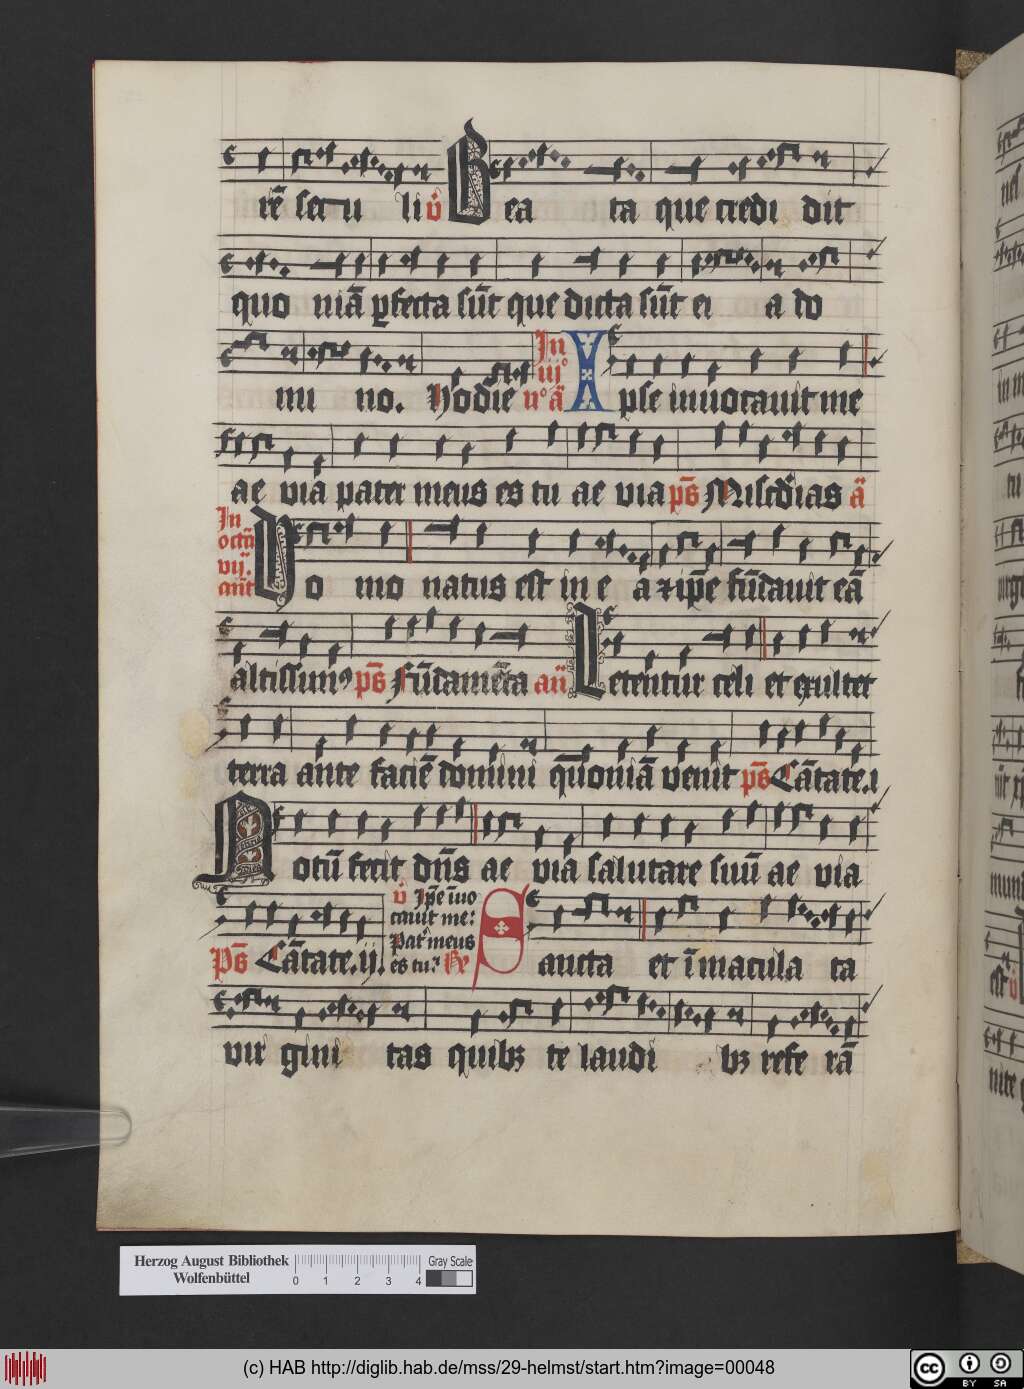 rē secu li v̇ Bea ta que credi dit
quo niā ꝑfecta sūt que dicta sūt ei a do
mi no. Hodie
In iijͦ nͦ ā Ipse inuocauit me
ae via pater meus es tu ae via ps̄ Misc̄dias ā
In octā vij. ant̄ Homo natus est in e a xip̄e fūdauit eā
altissimꝰ ps̄ Fūdamēta añ Letentur celi et exultet
terra ante faciē domini quoniā venit ps̄ Cātate.i
Notū fecit dn̄s ae via salutare suū ae via
Ps̄ Cātate.ij.
v̇ Ip̄e īuo
cauit me:
Pat meus
es tu:
Sancta et īmacula ta
vir gini tas quibꝫ te laudi bꝫ refe rā
Herzog August Bibliothek
Wolfenbüttel
0 1 2 3 4
Gray Scale
(c) HAB http://diglib.hab.de/mss/29-helmst/start.htm?image=00048
cc BY SA